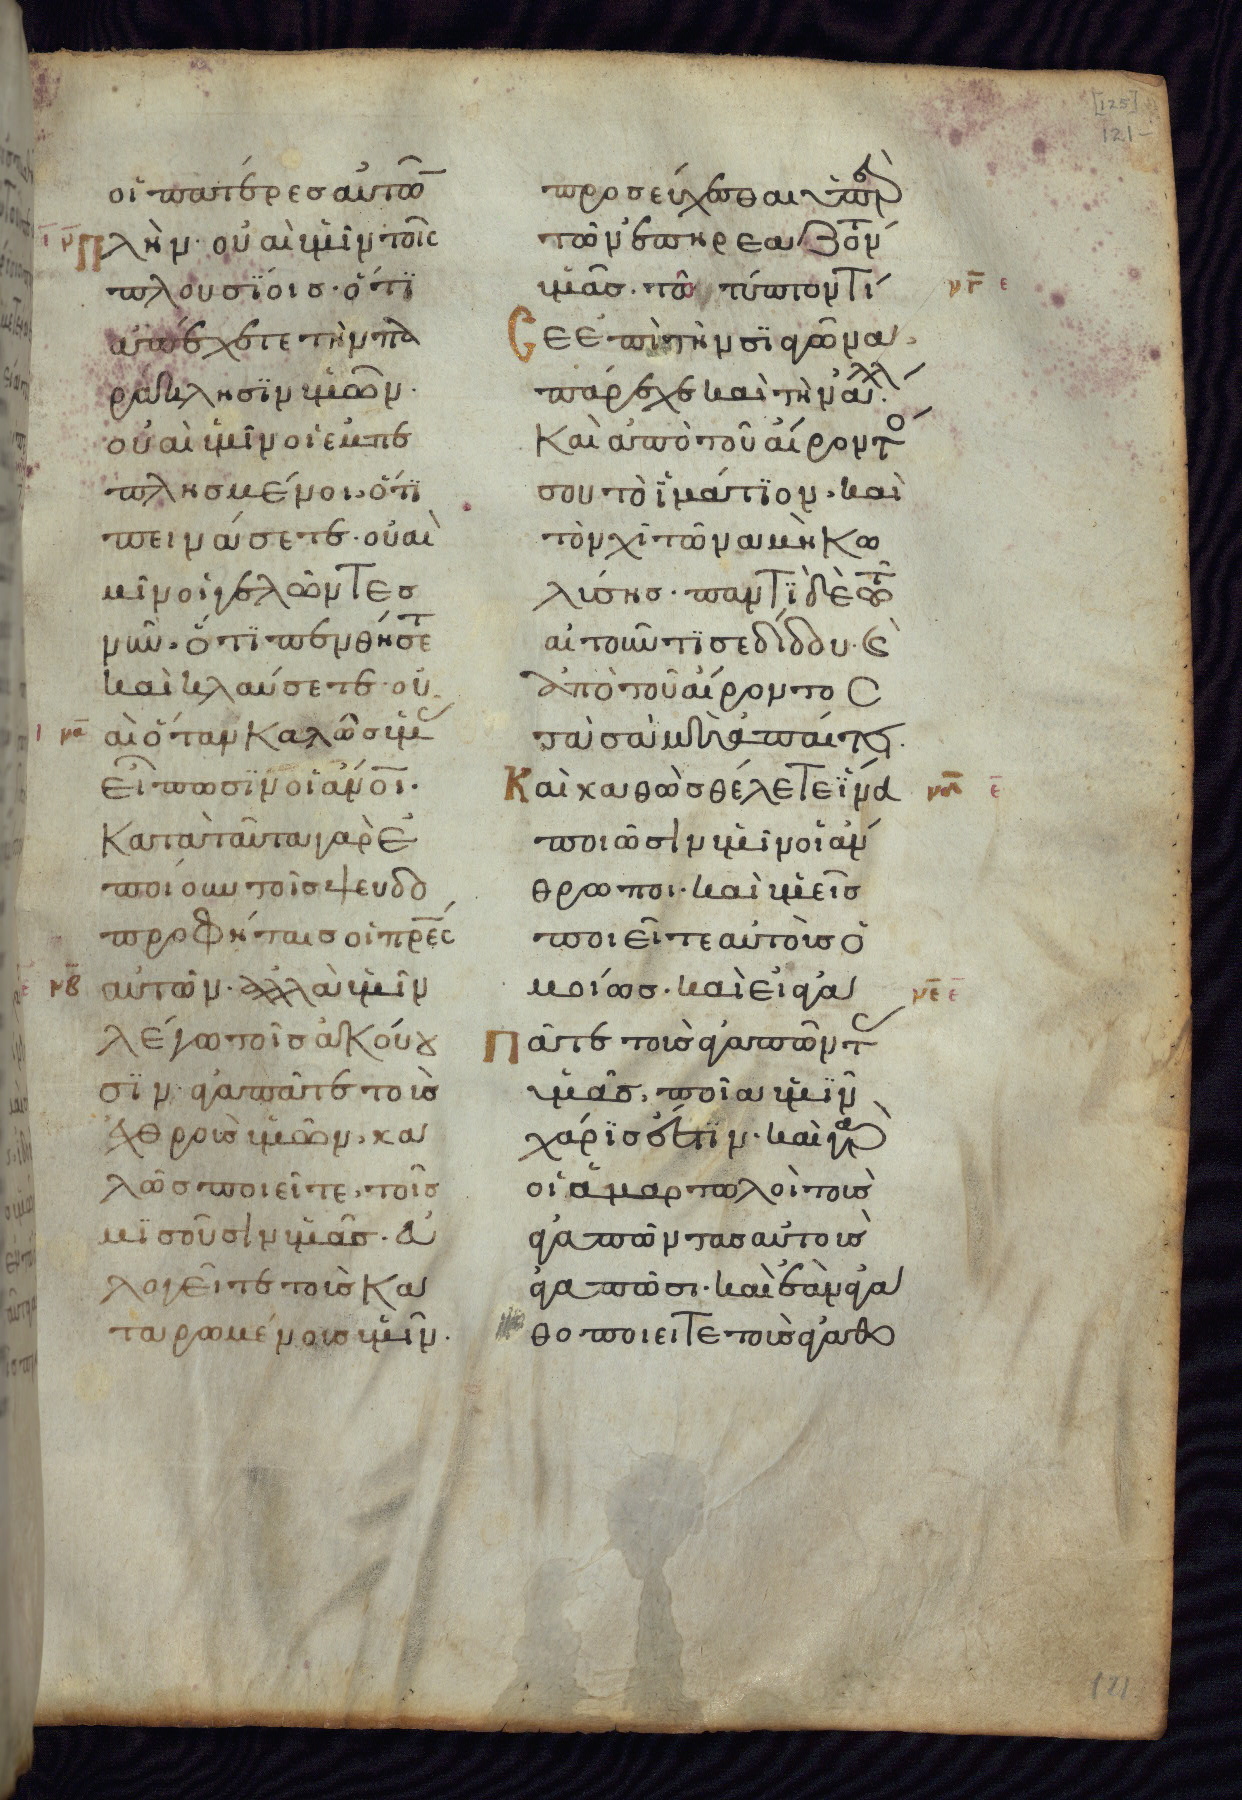 [125]
121
οἱ πατέρες αὐτῶ
ῑ ν̄ Πλὴν οὐαὶ ὑμῖν τοῖς
πλουσϊοις· ὅτϊ
ἀπέχετε τὴν πα
ράκλησϊν ὑμῶν·
οὐαὶ ὑμῖν οἱ ἐμπε
πλησμένοι· ὅτϊ
πεινάσετε· οὐαὶ
ὑμῖν οἱ γελῶντες
νῦν· ὅτϊ πενθήσετ
καὶ κλαύσετε· οὐ
να αὶ ὅταν καλῶσ ὑμ
εἴπωσϊν οἱ ἀν̅ο̅ι·
Κατὰ ταῦτα γὰρ ἐ
ποίουν τοῖς ψευδο
προφήταις οἱ πρ̅ε̅ς
νβ αὐτῶν· ἀλλὰ ὑμῖν
λέγω τοῖς ἀκούου
σϊν· ἀγαπᾶτε τοὺς
ἐχθροὺς ὑμῶν· κα
λῶς ποιεῖτε, τοῖς
μϊσοῦσιν ὑμᾶς· εὐ
λογεῖτε τοὺς κα
ταρωμένους ὑμῖν·
προσεύχεσθαι ὑπὲρ
τῶν ἐπηρεαζόν
ὑμᾶς· τῶ τύπτοντί νγ ε
Σε ἐπὶ τὴν σϊαγῶνα
πάρεχε καὶ τὴν ἄλλ·
Καὶ ἀπὸ τοῦ αἴροντο
σου τὸ ἱμάτϊον· καὶ
τὸν χιτῶνα μὴ κω
λύσης· παντϊ δὲ τῶ
αἰτοῦντϊ σε δίδου· κ
ἀπὸ τοῦ αἴροντος
τὰ σὰ μὴ ἀπαίτει·
Καὶ καθὼς θέλετε ἵνα νδ ε
ποιῶσιν ὑμῖν οἱ ἄν
θρωποι· καὶ ὑμεῖς
ποιεῖτε αὐτοῖς ὁ
μοίως· καὶ εἰ ἀγα νε ε
Πᾶτε τοὺς ἀγαπῶντ
ὑμᾶς, ποία ὑμῖν
χάρϊς ἐστϊν· καὶ γὰρ
οἱ ἁμαρτωλοὶ τοὺς
ἀγαπῶντας αὐτοὺς
ἀγαπῶσι· καὶ ἐὰν ἀγα
θοποιειτε τοὺς ἀγαθο
121